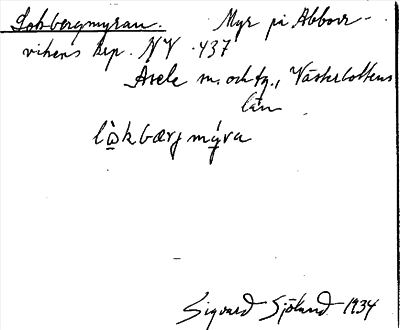 Lokbergmyran. Myr på Abborr-
vikens krp. NV ·437
Åsele sn. och tg., Västerbottens
län
lò̱kbærg mýra
Sigvard Sjölund 1934